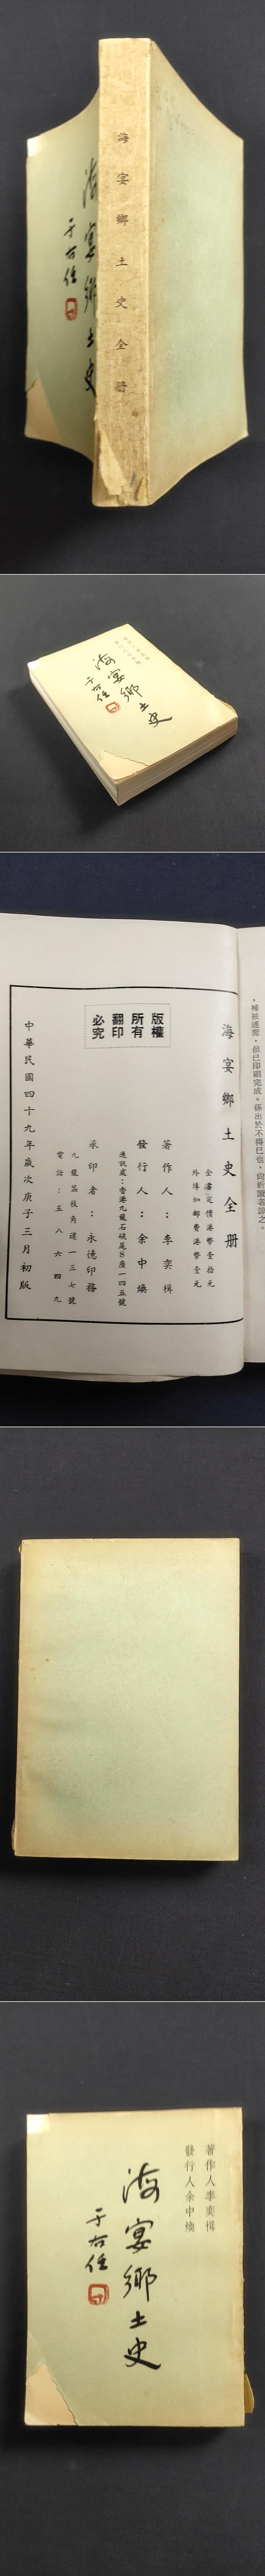 海宴鄉土史全冊
海宴鄉土史
于右任
海宴鄉土史
于右任
補敍述部，但已印刷完成。係出於不得已也，尚祈讀者諒之。
海宴鄉土史全冊
全書定價港幣壹拾元
外埠加郵費港幣壹元
版權所有翻印必究
著作人：李奕楫
發行人：余中煥
通訊處：香港九龍石硤尾S座一四五號
承印者：永德印務
九龍荔枝角道一三七號
電話：五八六四九
中華民國四十九年歲次庚子三月初版
著作人李奕楫
發行人余中煥
海宴鄉土史
于右任